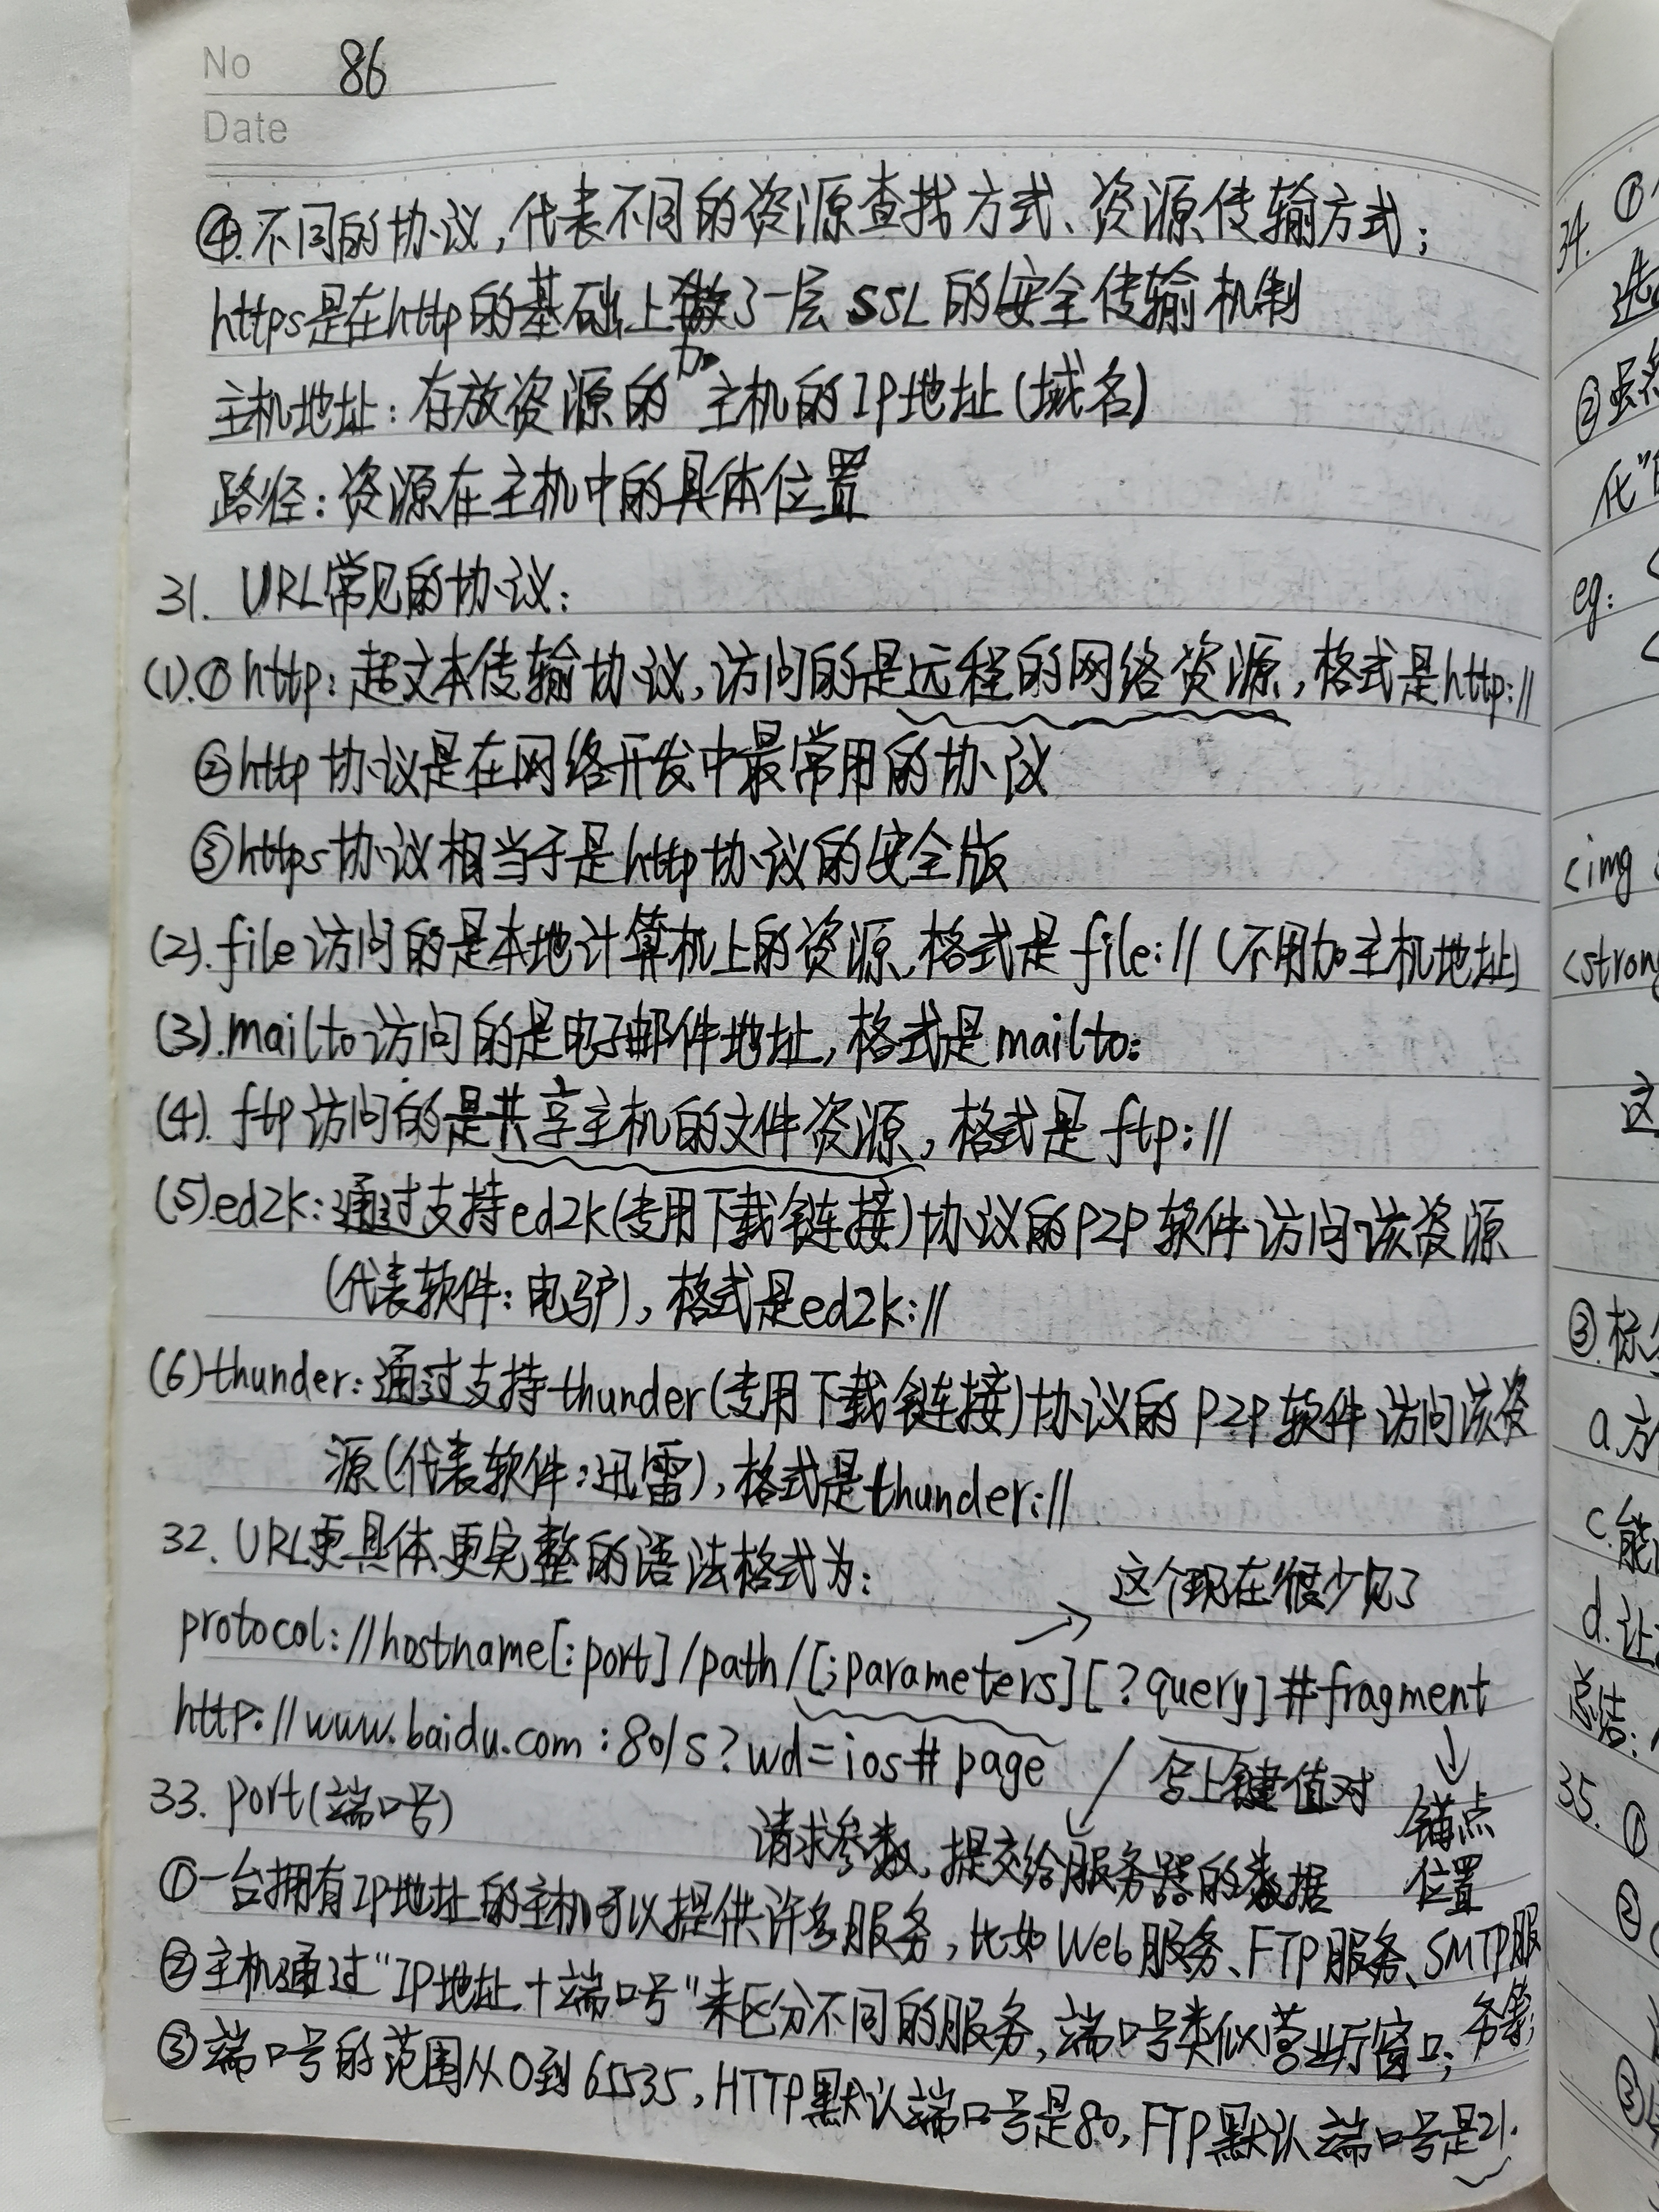 No 86
Date
④.不同的协议,代表不同的资源查找方式、资源传输方式;
https是在http的基础上加了一层SSL的安全传输机制
主机地址:存放资源的主机的IP地址(域名)
路径:资源在主机中的具体位置
31. URL常见的协议:
(1).①http:超文本传输协议,访问的是远程的网络资源,格式是http://
②http协议是在网络开发中最常用的协议
③https协议相当于是http协议的安全版
(2).file访问的是本地计算机上的资源,格式是file://(不用加主机地址)
(3).mailto访问的是电子邮件地址,格式是mailto:
(4).ftp访问的是共享主机的文件资源,格式是ftp://
(5).ed2k:通过支持ed2k(专用下载链接)协议的P2P软件访问该资源
(代表软件:电驴),格式是ed2k://
(6)thunder:通过支持thunder(专用下载链接)协议的P2P软件访问该资
源(代表软件:迅雷),格式是thunder://
32.URL更具体更完整的语法格式为:
这个现在很少见了
protocol://hostname[:port]/path/[;parameters][?query]#fragment
http://www.baidu.com:80/s?wd=ios#page
写上键值对
锚点
位置
33. port(端口号)
请求参数,提交给服务器的数据
①一台拥有IP地址的主机可以提供许多服务,比如Web服务、FTP服务、SMTP服
务等;
②主机通过"IP地址+端口号"来区分不同的服务,端口号类似营业厅窗口;
③端口号的范围从0到65535,HTTP默认端口号是80,FTP默认端口号是21.
34. ①
②虽
eg:
<img
<strong
这
③.标
a.方
c.能
d.让
总结:
35. ①
②
③